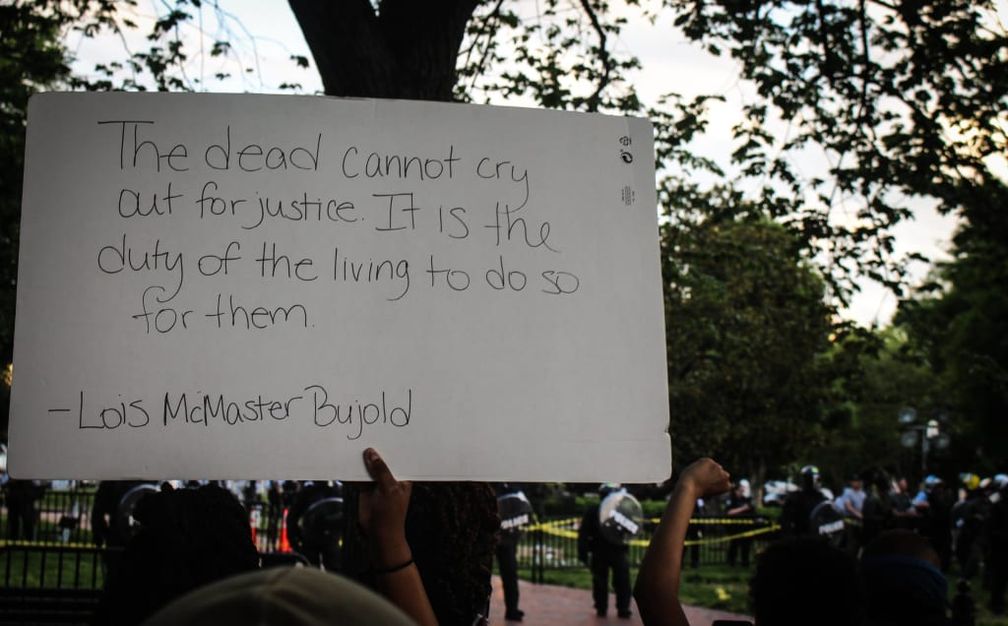 The dead cannot cry
out for justice. It is the
duty of the living to do so
for them.
- Lois McMaster Bujold